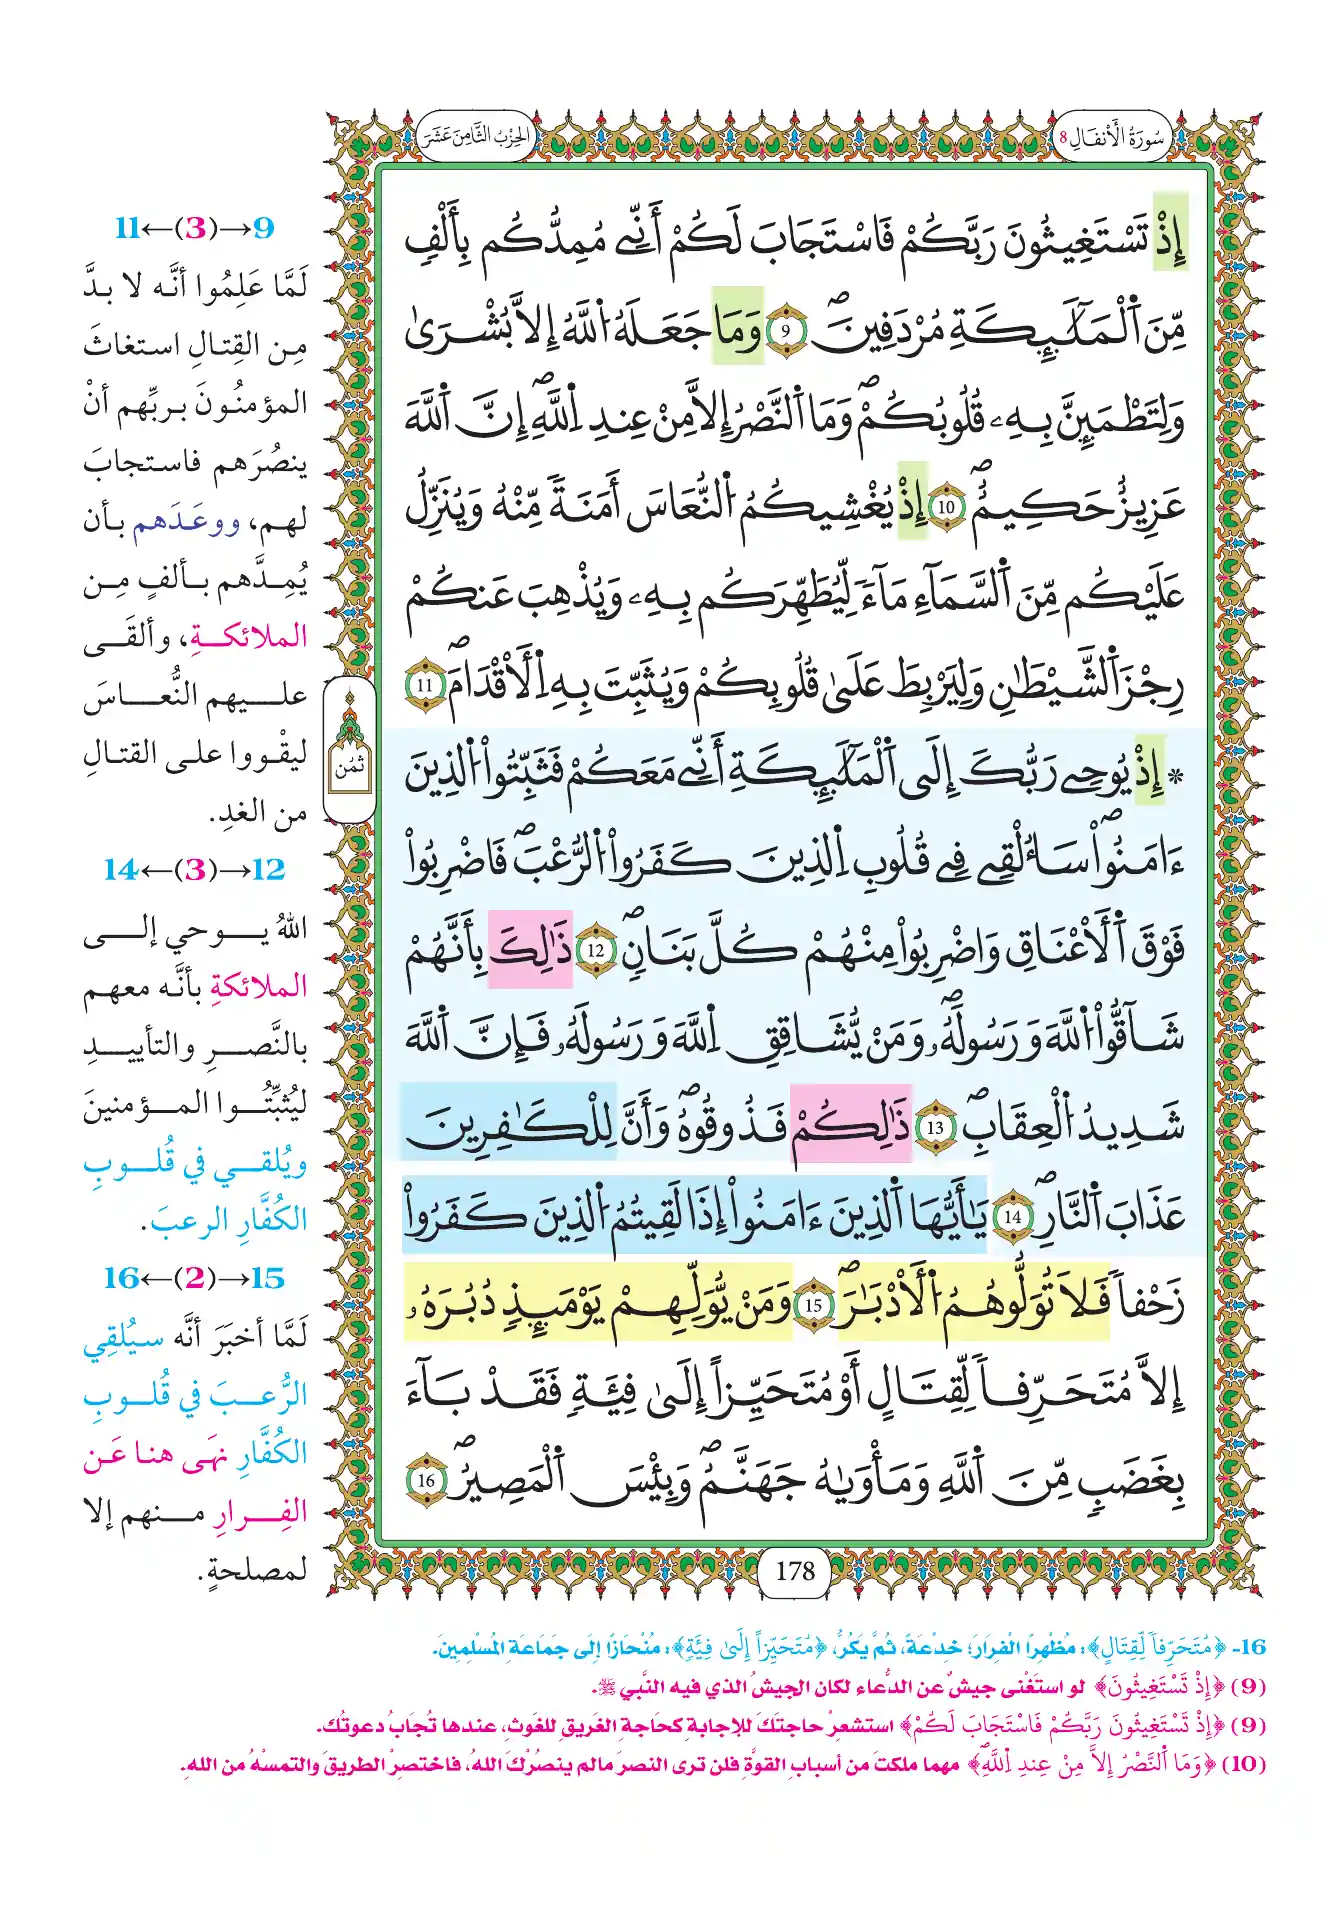 سُورَةُ الأَنفَالِ 8
الحِزْبُ الثَّامِنَ عَشَرَ
إِذْ تَسْتَغِيثُونَ رَبَّكُمْ فَاسْتَجَابَ لَكُمْ أَنِّے مُمِدُّكُم بِأَلْفٖ
مِّنَ اَ۬لْمَلَٰٓئِكَةِ مُرْدَفِينَۖ 9 وَمَا جَعَلَهُ اُ۬للَّهُ إِلَّا بُشْر۪يٰ
وَلِتَطْمَئِنَّ بِهِۦ قُلُوبُكُمْۖ وَمَا اَ۬لنَّصْرُ إِلَّا مِنْ عِندِ اِ۬للَّهِۖ إِنَّ اَ۬للَّهَ
عَزِيزٌ حَكِيمٌۖ 10 إِذْ يُغْشِيكُمُ اُ۬لنُّعَاسَ أَمَنَةٗ مِّنْهُ وَيُنَزِّلُ
عَلَيْكُم مِّنَ اَ۬لسَّمَآءِ مَآءٗ لِّيُطَهِّرَكُم بِهِۦ وَيُذْهِبَ عَنكُمْ
رِجْزَ اَ۬لشَّيْطَٰنِ وَلِيَرْبِطَ عَلَىٰ قُلُوبِكُمْ وَيُثَبِّتَ بِهِ اِ۬لْأَقْدَامَۖ 11
* إِذْ يُوحِے رَبُّكَ إِلَى اَ۬لْمَلَٰٓئِكَةِ أَنِّے مَعَكُمْ فَثَبِّتُواْ اُ۬لذِينَ
ءَامَنُواْۖ سَأُلْقِے فِے قُلُوبِ اِ۬لذِينَ كَفَرُواْ اُ۬لرُّعْبَۖ فَاضْرِبُواْ
فَوْقَ اَ۬لْأَعْنَاقِ وَاضْرِبُواْ مِنْهُمْ كُلَّ بَنَانٖۖ 12 ذَٰلِكَ بِأَنَّهُمْ
شَآقُّواْ اُ۬للَّهَ وَرَسُولَهُۥۖ وَمَنْ يُّشَاقِقِ اِ۬للَّهَ وَرَسُولَهُۥ فَإِنَّ اَ۬للَّهَ
شَدِيدُ اُ۬لْعِقَابِۖ 13 ذَٰلِكُمْ فَذُوقُوهُۖ وَأَنَّ لِلْكَٰفِرِينَ
عَذَابَ اَ۬لنَّارِۖ 14 يَٰٓأَيُّهَا اَ۬لذِينَ ءَامَنُواْ إِذَا لَقِيتُمُ اُ۬لذِينَ كَفَرُواْ
زَحْفاٗ فَلَا تُوَلُّوهُمُ اُ۬لْأَدْبَٰرَۖ 15 وَمَنْ يُّوَلِّهِمْ يَوْمَئِذٖ دُبُرَهُۥ
إِلَّا مُتَحَرِّفاٗ لِّقِتَالٍ أَوْ مُتَحَيِّزاً إِلَىٰ فِئَةٖ فَقَدْ بَآءَ
بِغَضَبٖ مِّنَ اَ۬للَّهِ وَمَأْوَيٰهُ جَهَنَّمُۖ وَبِئْسَ اَ۬لْمَصِيرُۖ 16
ثمُن
178
9→(3)←11
لَمَّا عَلِمُوا أنَّه لا بدَّ
مِن القِتالِ استغاثَ
المؤمنُونَ بربِّهم أنْ
ينصُرَهم فاستجابَ
لهم، ووعَدَهم بأن
يُمِدَّهم بألفٍ مِن
الملائكةِ، وألقَى
عليهم النُّعاسَ
ليقْووا على القتالِ
من الغدِ.
12→(3)←14
اللهُ يوحي إلى
الملائكةِ بأنَّه معهم
بالنَّصرِ والتأييدِ
ليُثبِّتُوا المؤمنينَ
ويُلقي في قُلوبِ
الكُفَّارِ الرعبَ.
15→(2)←16
لَمَّا أخبَرَ أنَّه سيُلقِي
الرُّعبَ في قُلوبِ
الكُفَّارِ نهَى هنا عَن
الفِرارِ منهم إلا
لمصلحةٍ.
16- ﴿مُتَحَرِّفاٗ لِّقِتَالٍ﴾: مُظْهِرًا الْفِرَارَ؛ خِدْعَةً، ثُمَّ يَكُرُّ، ﴿مُتَحَيِّزاً إِلَىٰ فِئَةٖ﴾: مُنْحَازًا إِلَى جَمَاعَةِ الْمُسْلِمِينَ.
(9) ﴿إِذْ تَسْتَغِيثُونَ﴾ لو استَغْنى جيشٌ عن الدُّعاء لكان الجيشُ الذي فيه النَّبي ﷺ.
(9) ﴿إِذْ تَسْتَغِيثُونَ رَبَّكُمْ فَاسْتَجَابَ لَكُمْ﴾ استشعرْ حاجتَكَ للإجابةِ كحَاجةِ الغَريقِ للغَوثِ، عندها تُجَابُ دعوتُك.
(10) ﴿وَمَا اَ۬لنَّصْرُ إِلَّا مِنْ عِندِ اِ۬للَّهِۖ﴾ مهما ملكتَ من أسبابِ القوَّةِ فلن ترى النصرَ مالم ينصُرْكَ اللهُ، فاختصِرْ الطريقَ والتمسْهُ مَن اللهِ.